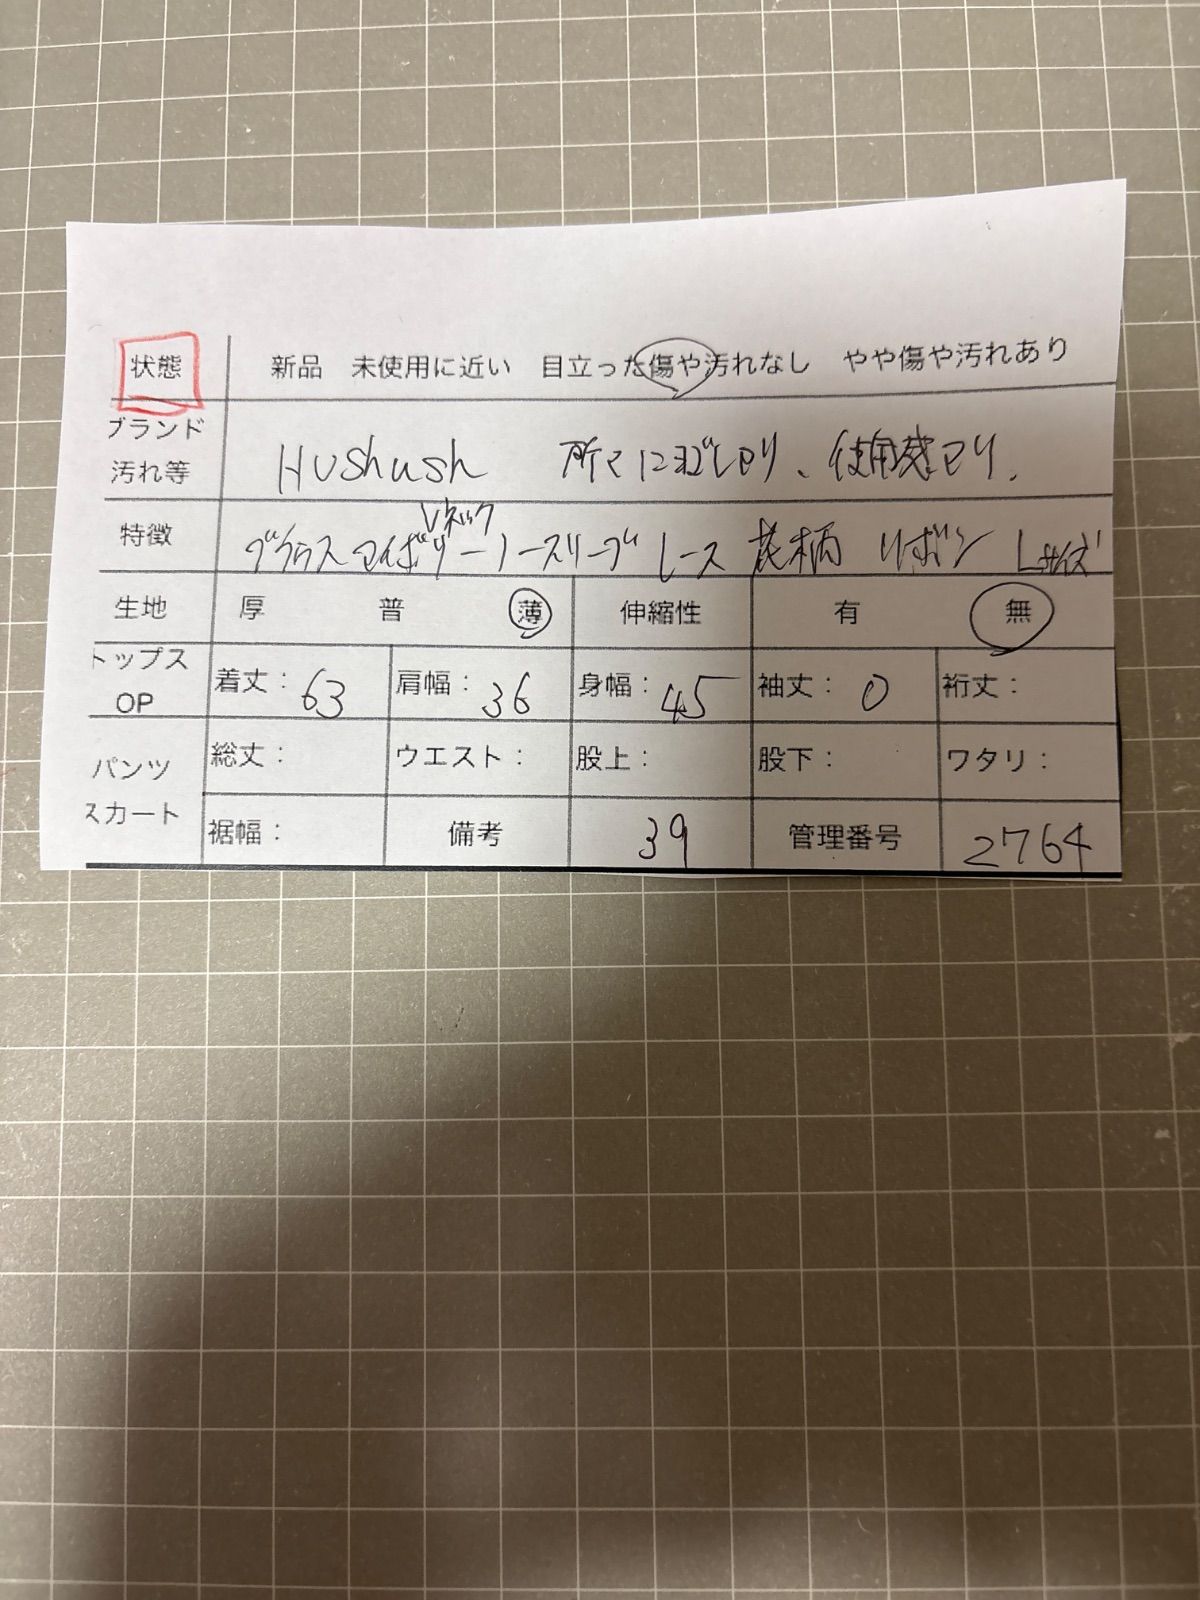 状態 新品 未使用に近い 目立った傷や汚れなし やや傷や汚れあり
ブランド
汚れ等 HUShush 所々に 使用感あり、
Vネック
特徴 ブラウス アイボリー ノースリーブ レース 花柄 リボン Lサイズ
生地 厚 普 薄 伸縮性 有 無
トップス
OP 着丈：63 肩幅：36 身幅：45 袖丈：0 裄丈：
パンツ 総丈： ウエスト： 股上： 股下： ワタリ：
スカート 裾幅： 備考 39 管理番号 2764